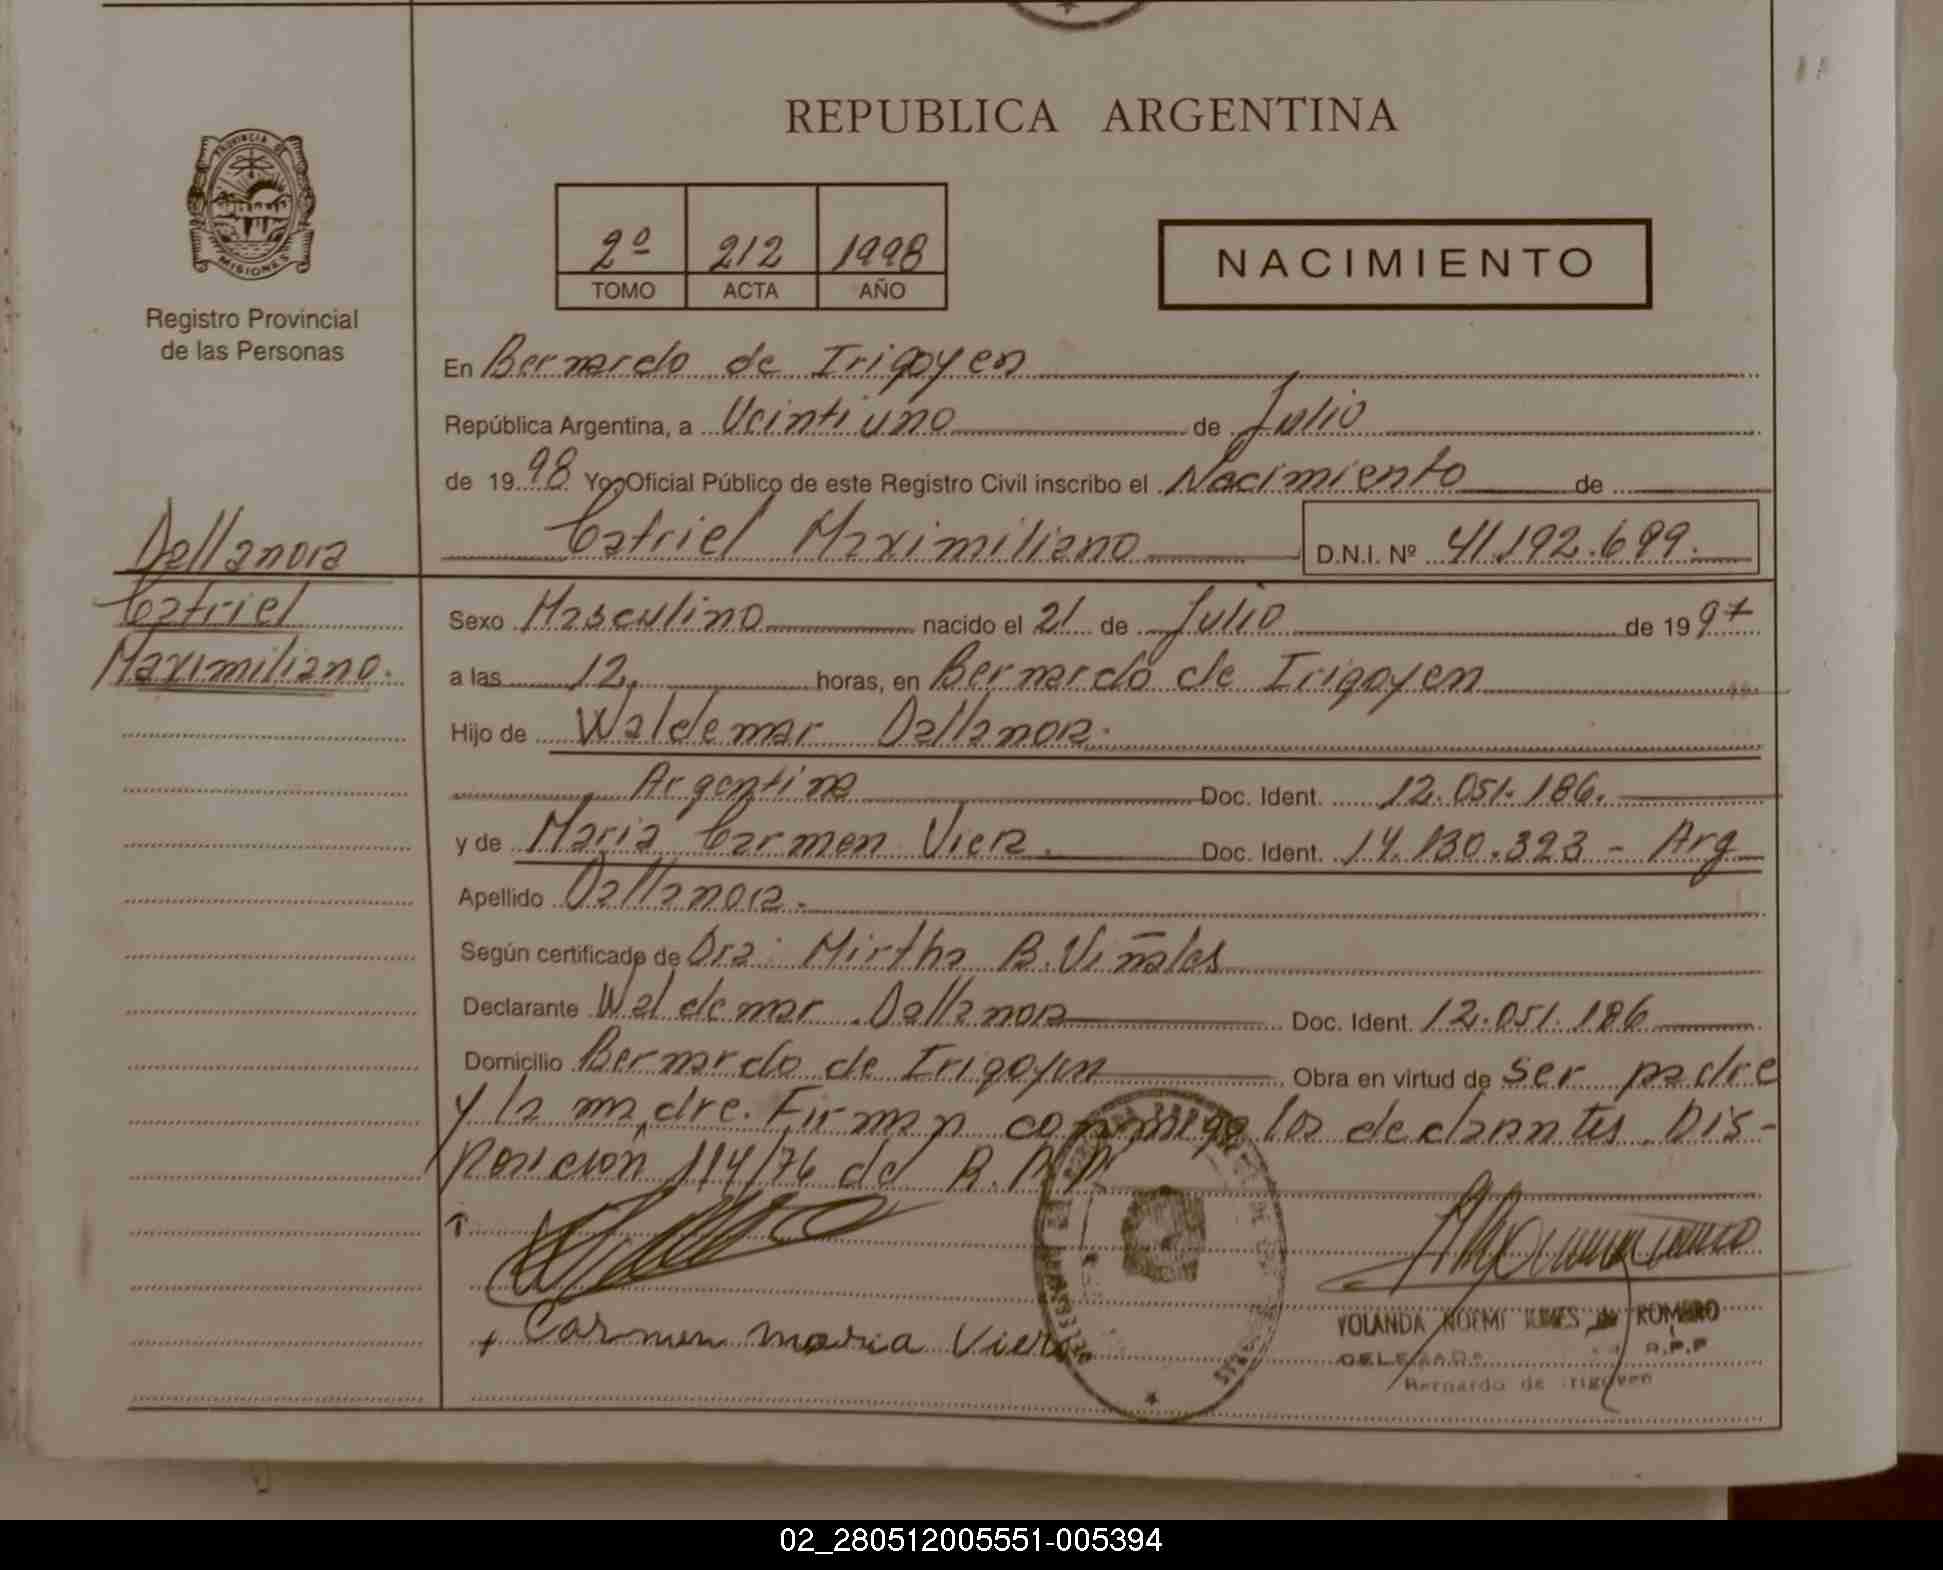 REPUBLICA ARGENTINA
PROVINCIA DE
MISIONES
Registro Provincial
de las Personas
2º 212 1998
TOMO ACTA AÑO
NACIMIENTO
En Bernardo de Irigoyen
República Argentina, a Veintiuno de Julio
de 1998 Yo, Oficial Público de este Registro Civil inscribo el Nacimiento de
Catriel Maximiliano D.N.I. Nº 41.192.699.
Dellanora
Catriel
Maximiliano.
Sexo Masculino nacido el 21 de Julio de 1997
a las 12, horas, en Bernardo de Irigoyen
Hijo de Waldemar Dallanora.
Argentina Doc. Ident. 12.051.186.
y de Maria Carmen Viera. Doc. Ident. 14.130.323 - Arg
Apellido Dallanora.
Según certificado de Dra: Mirtha B. Viñales
Declarante Waldemar Dallanora Doc. Ident. 12.051.186
Domicilio Bernardo de Irigoyen Obra en virtud de ser padre
y la madre. Firman conmigo los declarantes. Dis-
posición 114/76 de R.P.P.
Carmen maria Viera
YOLANDA NOEMI DE ROMERO
DELEGADA R.P.P
Bernardo de Irigoyen
02_280512005551-005394